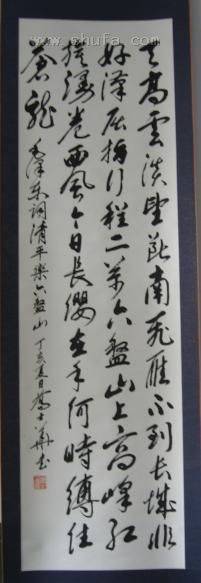 天高雲淡望斷南飛雁不到長城非
好漢屈指行程二萬六盤山上高峰紅
旗漫卷西風今日長纓在手何時縛住
蒼龍 毛澤東詞清平樂六盤山 丁亥夏日